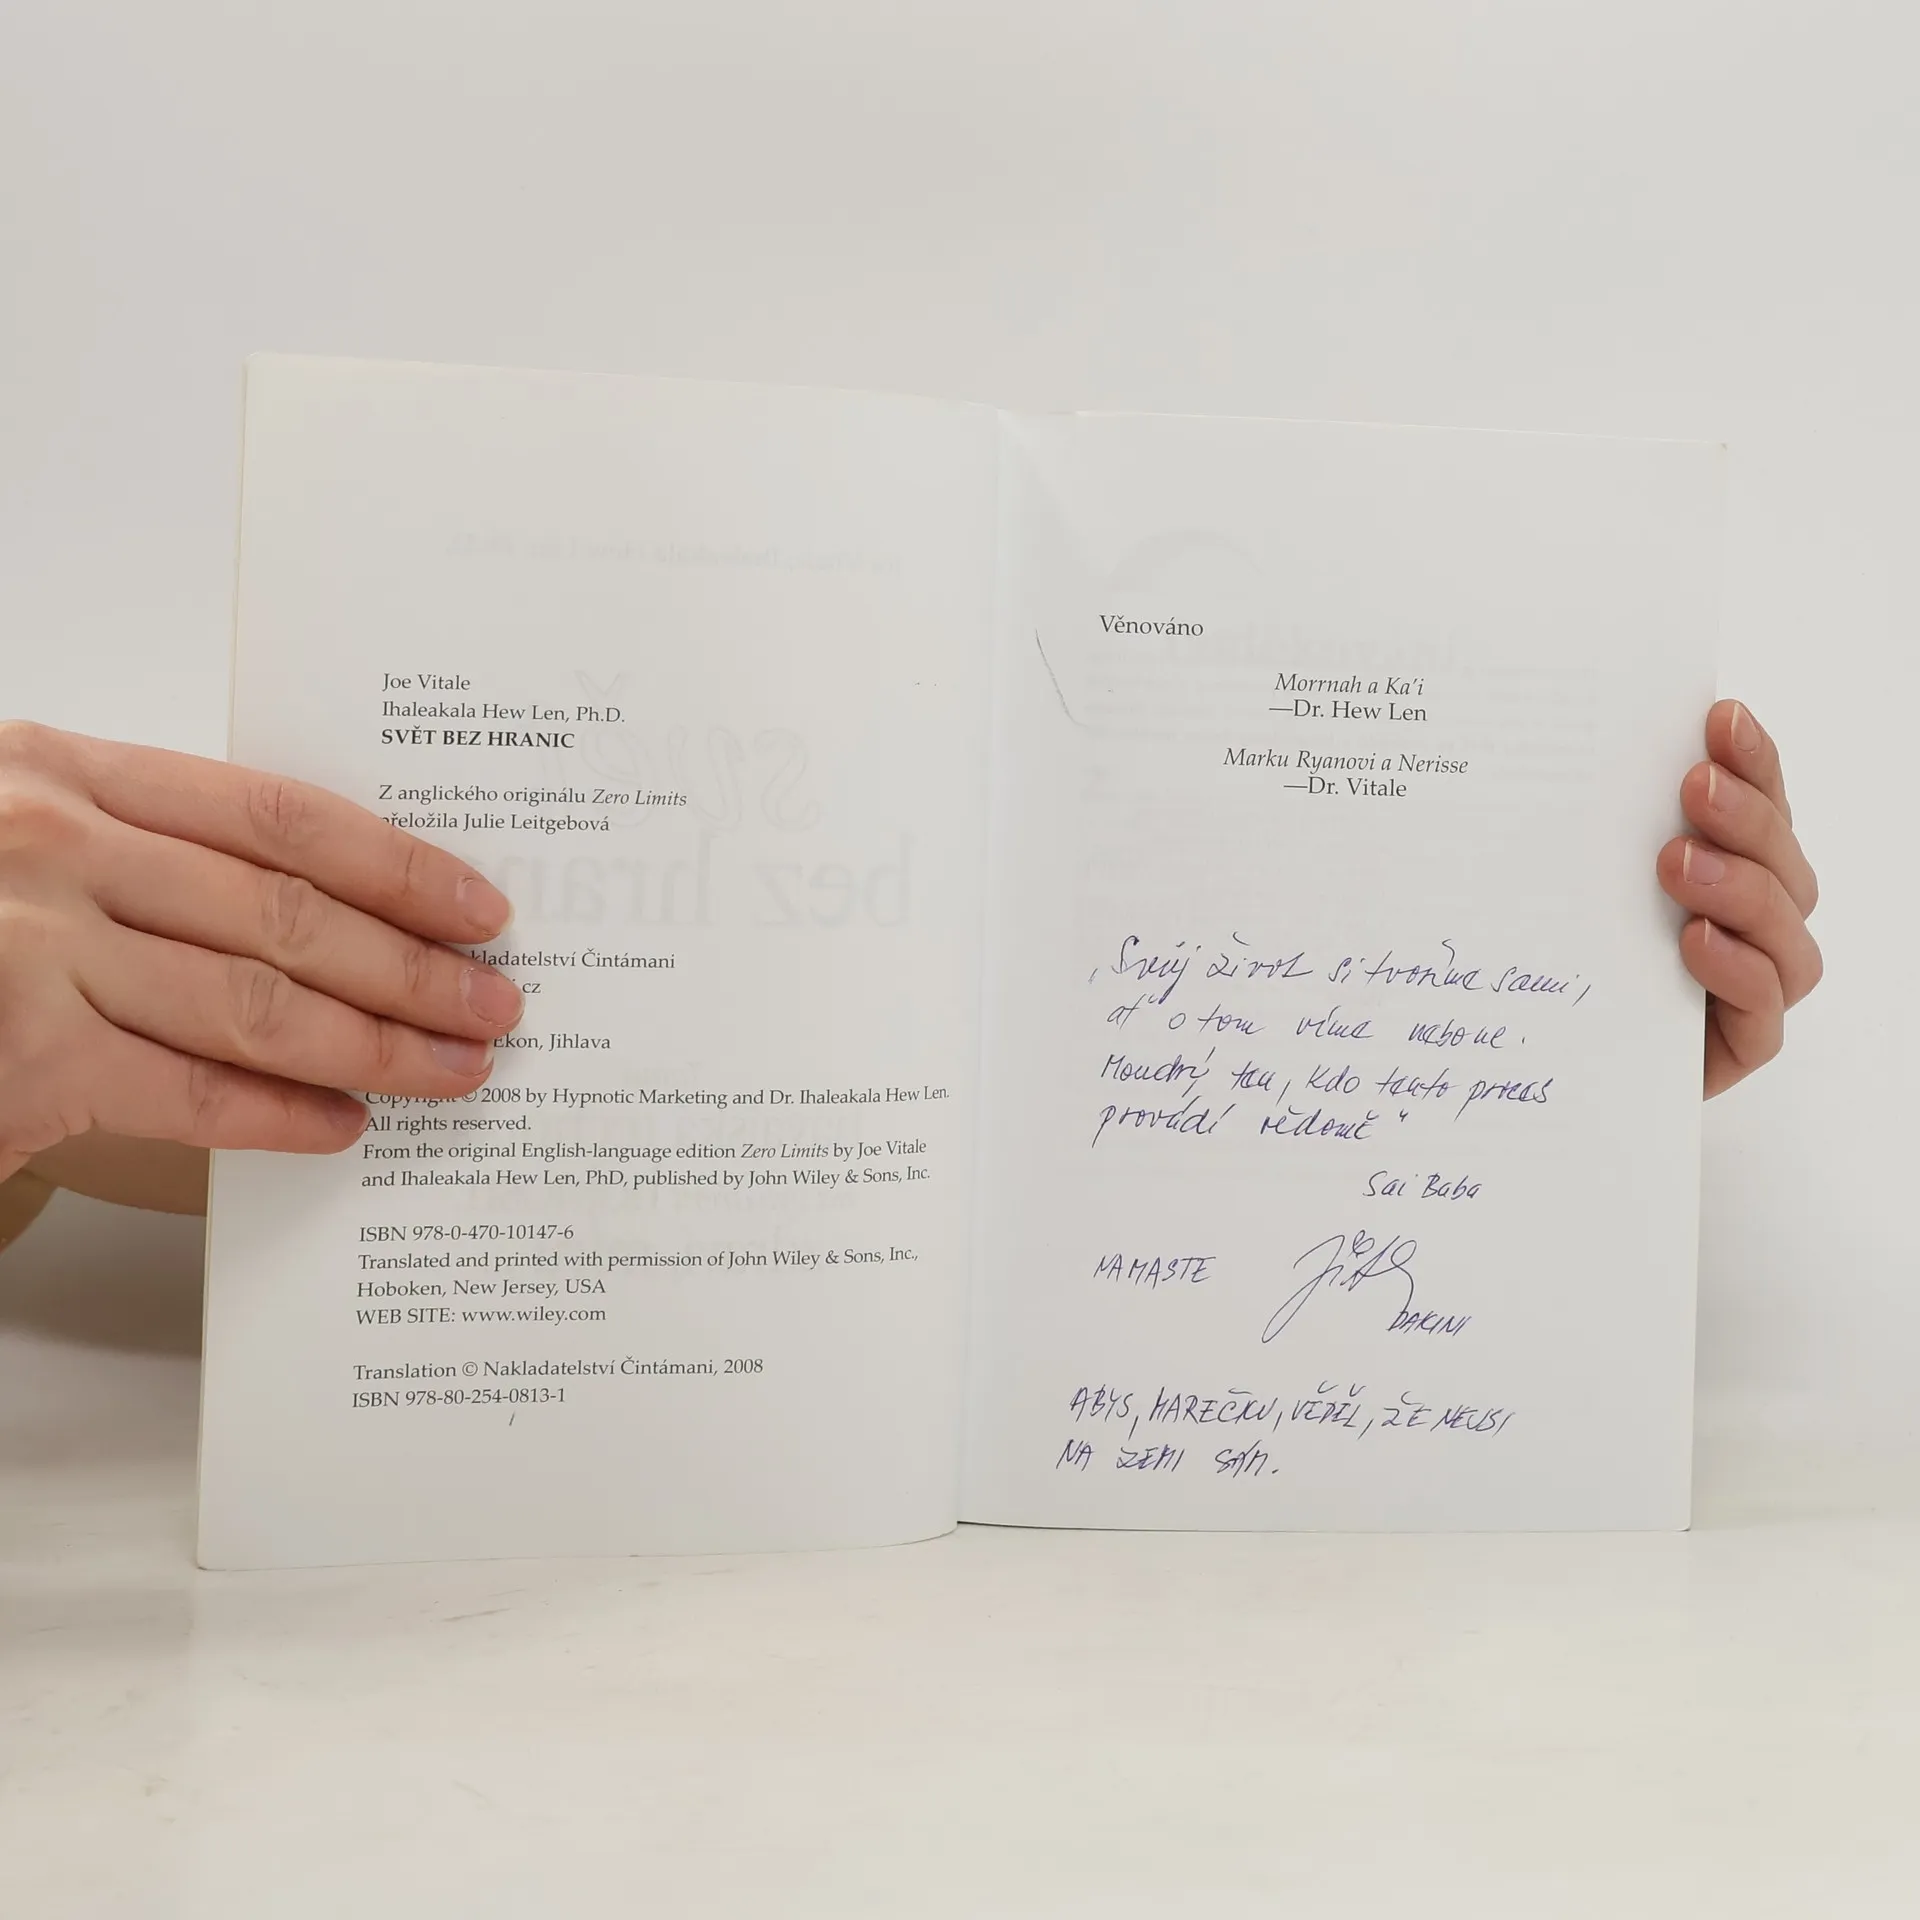 Joe Vitale
Ihaleakala Hew Len, Ph.D.
SVĚT BEZ HRANIC
Z anglického originálu Zero Limits
přeložila Julie Leitgebová
kladatelství Čintámani
.cz
Ekon, Jihlava
Copyright © 2008 by Hypnotic Marketing and Dr. Ihaleakala Hew Len.
All rights reserved.
From the original English-language edition Zero Limits by Joe Vitale
and Ihaleakala Hew Len, PhD, published by John Wiley & Sons, Inc.
ISBN 978-0-470-10147-6
Translated and printed with permission of John Wiley & Sons, Inc.,
Hoboken, New Jersey, USA
WEB SITE: www.wiley.com
Translation © Nakladatelství Čintámani, 2008
ISBN 978-80-254-0813-1
Věnováno
Morrnah a Ka'i
—Dr. Hew Len
Marku Ryanovi a Nerisse
—Dr. Vitale
„Svůj život si tvoříme sami,
ať o tom víme nebo ne.
Moudrý ten, kdo tento proces
provádí vědomě“
Sai Baba
NAMASTE
DAKINI
ABYS, MAREČKU, VĚDĚL, ŽE NEJSI
NA ZEMI SÁM.